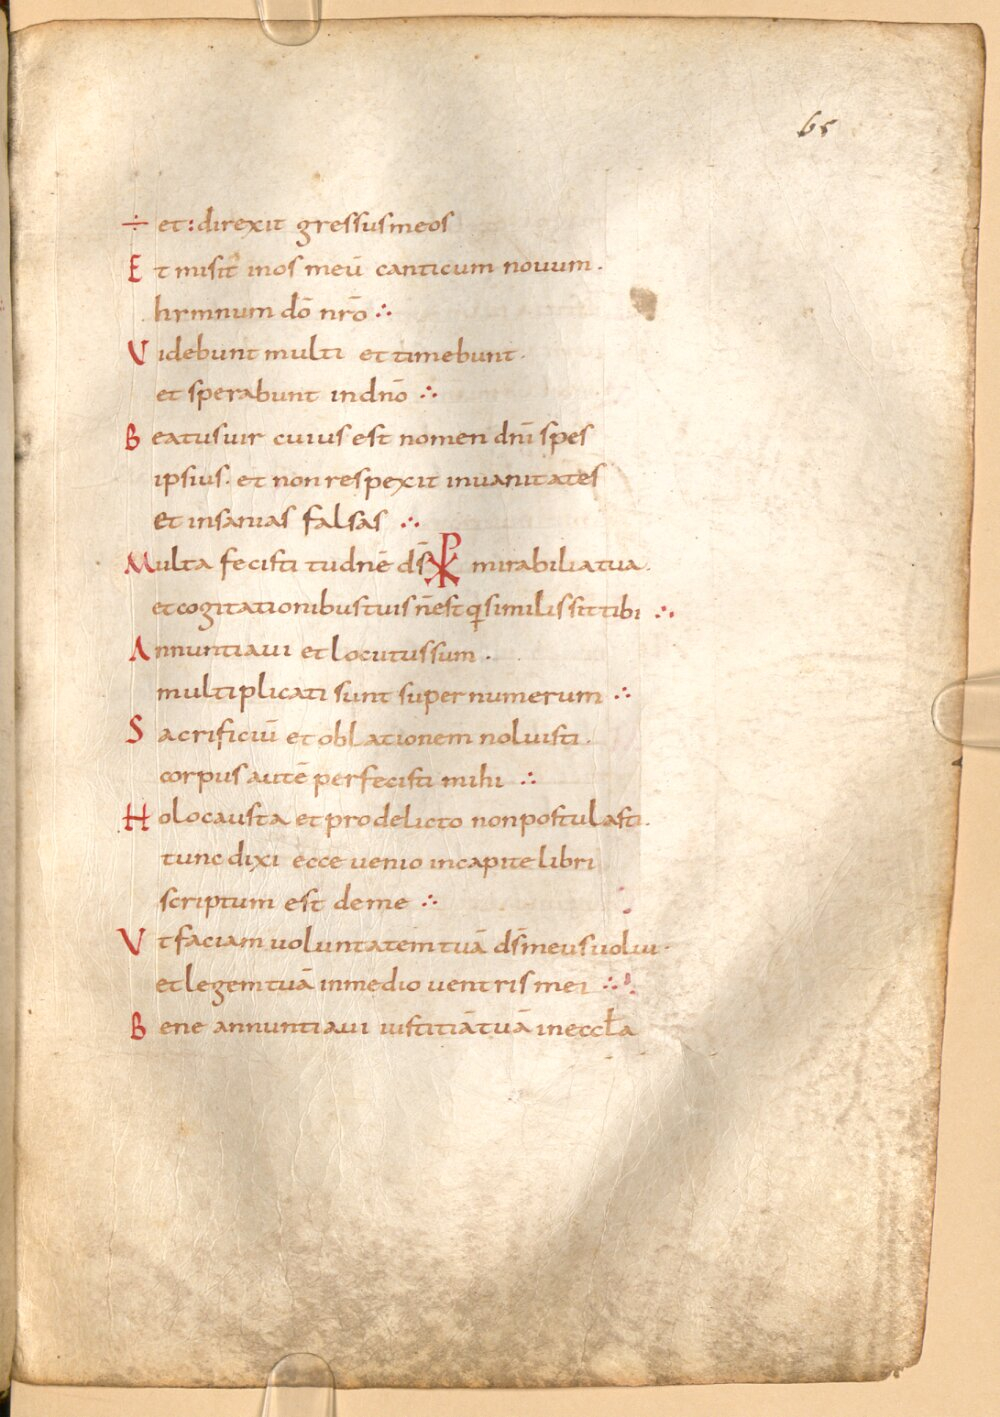 65
÷ et: direxit gressus meos
Et misit inos meū canticum nouum.
hymnum dō nr̄o ∴
Videbunt multi et timebunt.
et sperabunt indn̄o ∴
Beatusuir cuius est nomen dn̄i spes
ipsius. et non respexit inuanitates
et insanias falsas ∴
Multa fecisti tu dn̄e ds̄ ☧ mirabilia tua.
et cogitationibus tuis n̄ est q̨ similis sit tibi ∴
Annuntiaui et locutus sum.
multiplicati sunt super numerum ∴
Sacrificiū et oblationem noluisti.
corpus autē perfecisti mihi ∴
Holocausta et pro delicto non postulasti.
tunc dixi ecce uenio incapite libri
scriptum est deme ∴
Vt faciam uoluntatem tuā ds̄ meus uolui.
et legem tuā inmedio uentris mei ∴
Bene annuntiaui iustitiā tuā ineccl̄a